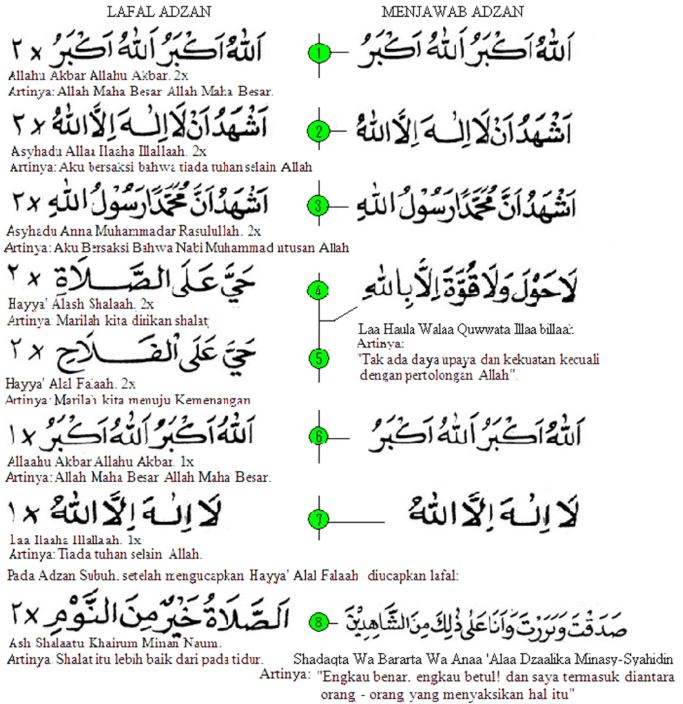 LAFAL ADZAN
MENJAWAB ADZAN
اَللهُ اَكْبَرُ اَللهُ اَكْبَرُ ×٢
1
اَللهُ اَكْبَرُ اَللهُ اَكْبَرُ
Allahu Akbar Allahu Akbar. 2x
Artinya: Allah Maha Besar Allah Maha Besar.
اَشْهَدُ اَنْ لَا اِلٰهَ اِلَّا اللهُ ×٢
2
اَشْهَدُ اَنْ لَا اِلٰهَ اِلَّا اللهُ
Asyhadu Allaa Ilaaha Illallaah. 2x
Artinya: Aku bersaksi bahwa tiada tuhan selain Allah
اَشْهَدُ اَنَّ مُحَمَّدًا رَسُوْلُ اللهِ ×٢
3
اَشْهَدُ اَنَّ مُحَمَّدًا رَسُوْلُ اللهِ
Asyhadu Anna Muhammadar Rasulullah. 2x
Artinya: Aku Bersaksi Bahwa Nabi Muhammad utusan Allah
حَيَّ عَلَى الصَّلَاةِ ×٢
4
لَا حَوْلَ وَلَا قُوَّةَ اِلَّا بِاللهِ
Hayya' Alash Shalaah. 2x
Artinya: Marilah kita dirikan shalat
Laa Haula Walaa Quwwata Illaa billaah
Artinya:
"Tak ada daya upaya dan kekuatan kecuali
dengan pertolongan Allah".
حَيَّ عَلَى الْفَلَاحِ ×٢
5
Hayya' Alal Falaah. 2x
Artinya: Marilah kita menuju Kemenangan
اَللهُ اَكْبَرُ اَللهُ اَكْبَرُ ×١
6
اَللهُ اَكْبَرُ اَللهُ اَكْبَرُ
Allaahu Akbar Allahu Akbar. 1x
Artinya: Allah Maha Besar Allah Maha Besar.
لَا اِلٰهَ اِلَّا اللهُ ×١
7
لَا اِلٰهَ اِلَّا اللهُ
Laa Ilaaha Illallaah. 1x
Artinya: Tiada tuhan selain Allah.
Pada Adzan Subuh, setelah mengucapkan Hayya' Alal Falaah diucapkan lafal:
اَلصَّلَاةُ خَيْرٌ مِنَ النَّوْمِ ×٢
8
صَدَقْتَ وَبَرَرْتَ وَاَنَا عَلٰى ذٰلِكَ مِنَ الشَّاهِدِيْنَ
Ash Shalaatu Khairum Minan Naum.
Artinya: Shalat itu lebih baik dari pada tidur.
Shadaqta Wa Bararta Wa Anaa 'Alaa Dzaalika Minasy-Syahidin
Artinya: "Engkau benar, engkau betul! dan saya termasuk diantara
orang - orang yang menyaksikan hal itu"